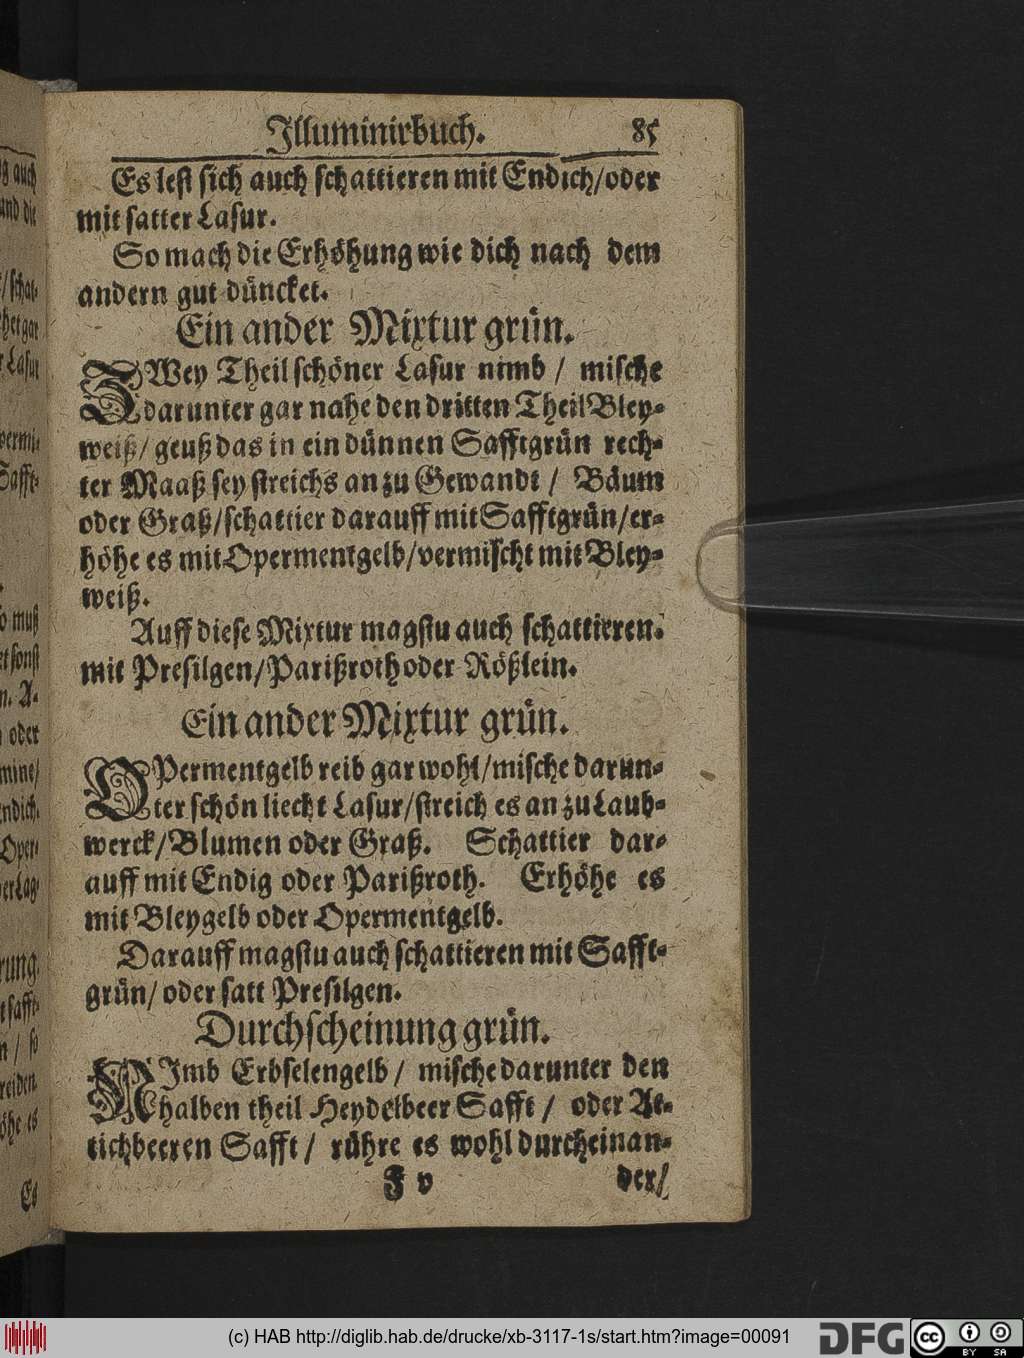 Illuminirbuch. 85
Es lest sich auch schattieren mit Endich/oder
mit satter Lasur.
So mach die Erhöhung wie dich nach dem
andern gut düncket.
Ein ander Mixtur grün.
ZWey Theil schöner Lasur nimb / mische
darunter gar nahe den dritten Theil Bley-
weiß/ geuß das in ein dünnen Safftgrün rech-
ter Maaß sey streichs an zu Gewandt / Bäum
oder Graß/schattier darauff mit Safftgrün/er-
höhe es mit Opermentgelb/vermischt mit Bley-
weiß.
Auff diese Mixtur magstu auch schattieren.
mit Presilgen/Parißroth oder Rößlein.
Ein ander Mixtur grün.
OPermentgelb reib gar wohl/mische darun-
ter schön liecht Lasur/streich es an zu Laub-
werck/Blumen oder Graß. Schattier dar-
auff mit Endig oder Parißroth. Erhöhe es
mit Bleygelb oder Opermentgelb.
Darauff magstu auch schattieren mit Safft-
grün/ oder satt Presilgen.
Durchscheinung grün.
NImb Erbselengelb / mische darunter den
halben theil Heydelbeer Safft / oder At-
tichbeeren Safft / rühre es wohl durcheinan-
F v der/
(c) HAB http://diglib.hab.de/drucke/xb-3117-1s/start.htm?image=00091
DFG
cc BY SA